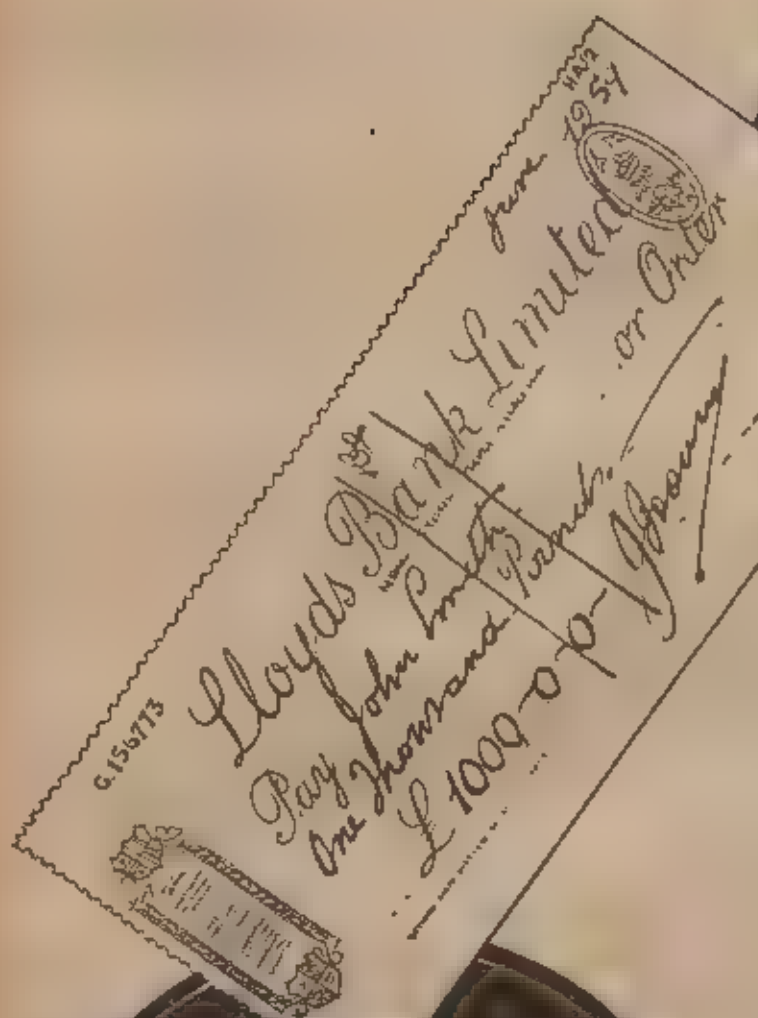 G.156773
HA/2
June 1954
Lloyds Bank Limited
Pay John Smith or Order
One Thousand Pounds
£ 1000-0-0-